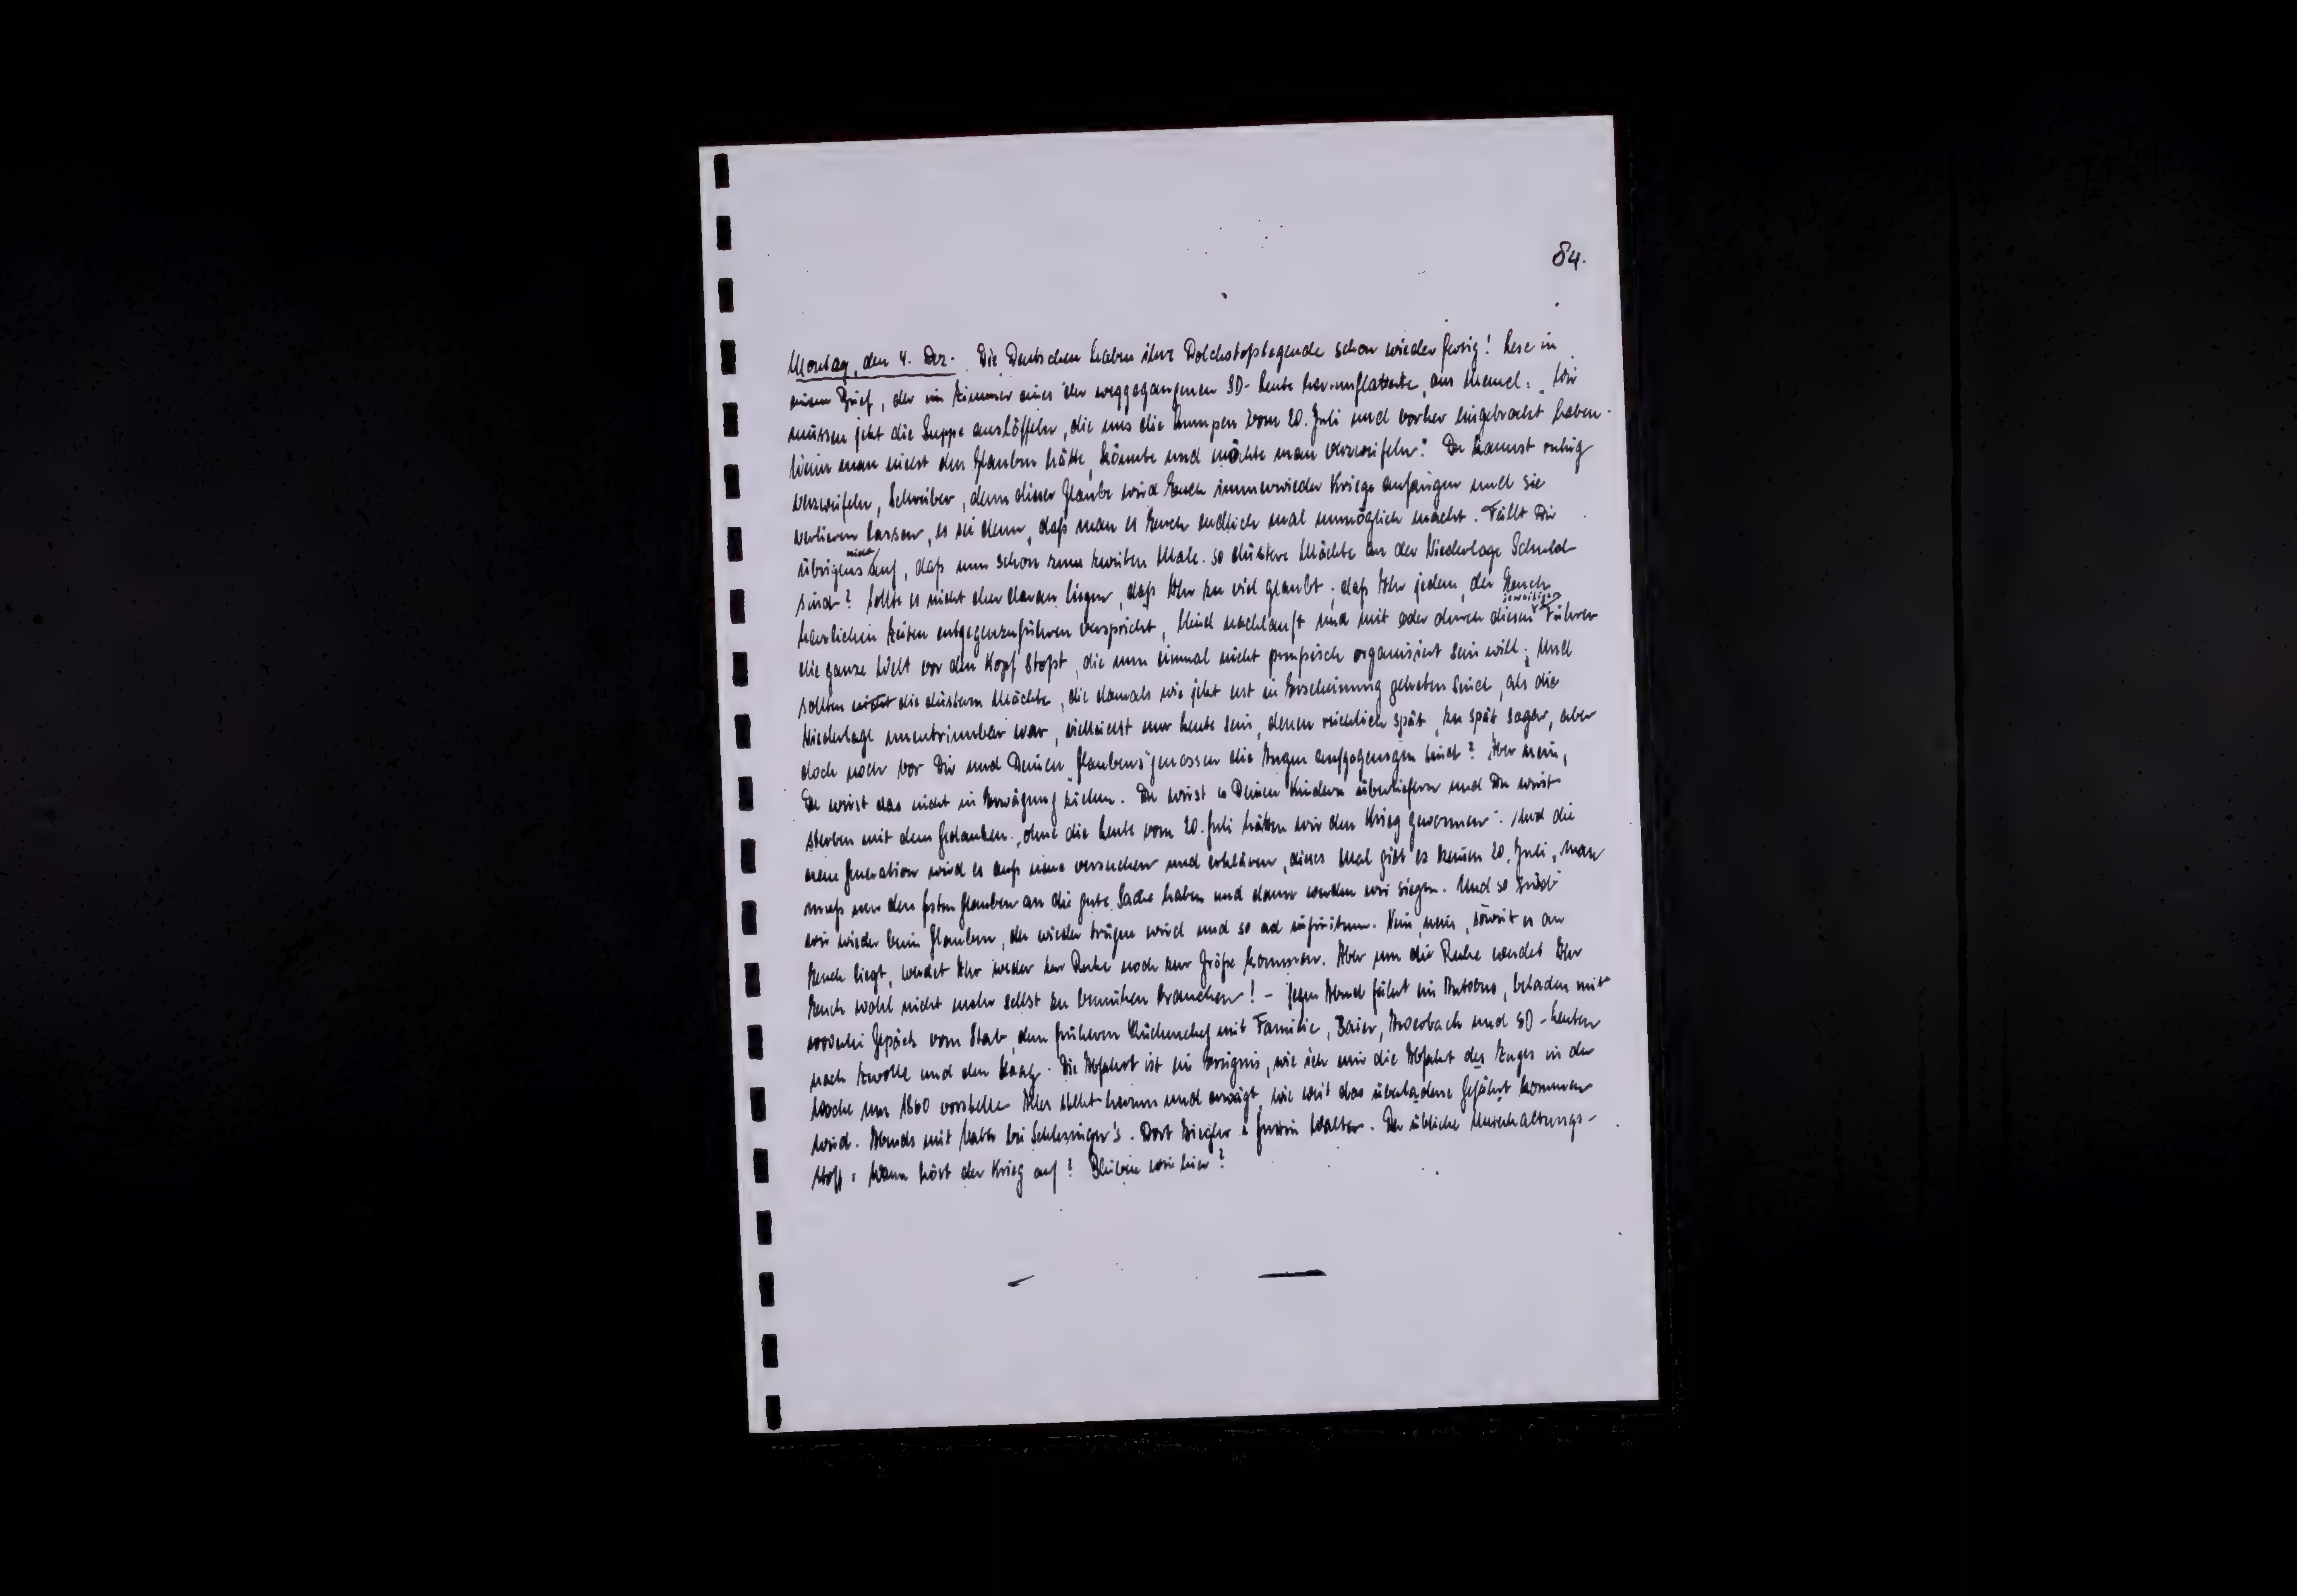 84.
Montag, den 4. Dez. Die Deutschen haben ihre Dolchstoßlegende schon wieder fertig! Lese in
einem Brief, der im Zimmer eines der weggegangenen SD-Leute herumflatterte, aus Memel: "Wir
müssen jetzt die Suppe auslöffeln, die uns die Lumpen vom 20. Juli und vorher eingebrockt haben.
Wenn man nicht den Glauben hätte, könnte und möchte man verzweifeln." Du kannst ruhig
verzweifeln, Schreiber, denn dieser Glaube wird Euch immerwieder Kriege anfangen und sie
verlieren lassen, es sei denn, daß man es Euch endlich mal unmöglich macht. Fällt Dir
übrigens nicht auf, daß nun schon zum zweiten Male so düstere Mächte an der Niederlage Schuld
sind? Sollte es nicht eher daran liegen, daß Ihr zu viel glaubt, daß Ihr jedem, der Euch
herrlichen Zeiten entgegenzuführen verspricht, blind nachlauft und mit oder durch diesen jeweiligen Führer
die ganze Welt vor den Kopf stoßt, die nun einmal nicht preußisch organisiert sein will; und
sollten nicht die düstern Mächte, die damals wie jetzt erst in Erscheinung getreten sind, als die
Niederlage unentrinnbar war, vielleicht nur Leute sein, denen reichlich spät, zu spät sogar, aber
doch noch vor Dir und Deinen Glaubensgenossen die Augen aufgegangen sind? Aber nein,
Du wirst das nicht in Erwägung ziehen. Du wirst es Deinen Kindern überliefern und Du wirst
sterben mit dem Gedanken: "ohne die Leute vom 20. Juli hätten wir den Krieg gewonnen". Und die
neue Generation wird es aufs neue versuchen und erklären, dieses Mal gibt es keinen 20. Juli, man
muß nur den festen Glauben an die gute Sache haben und dann werden wir siegen. Und so sind
wir wieder beim Glauben, der wieder trügen wird und so ad infinitum. Nein, nein, soweit es an
Euch liegt, werdet Ihr weder zur Ruhe noch zur Größe kommen. Aber um die Ruhe werdet Ihr
Euch wohl nicht mehr selbst zu bemühen brauchen! - Gegen Abend fährt ein Autobus, beladen mit
Gepäck vom Stab, dem früheren Küchenchef mit Familie, Baier, und SD-Leuten
nach Zwolle und den Haag. Die Abfahrt ist ein Ereignis, wie ich mir die Abfahrt des Zuges in der
Woche um 1860 vorstelle. Alles steht herum und erwägt, wie weit das überladene Gefährt kommen
wird. Abends mit bei Schlesinger's. Dort Ziegler & Walter. Der übliche Unterhaltungs-
stoff: Wann hört der Krieg auf? Bleiben wir hier?